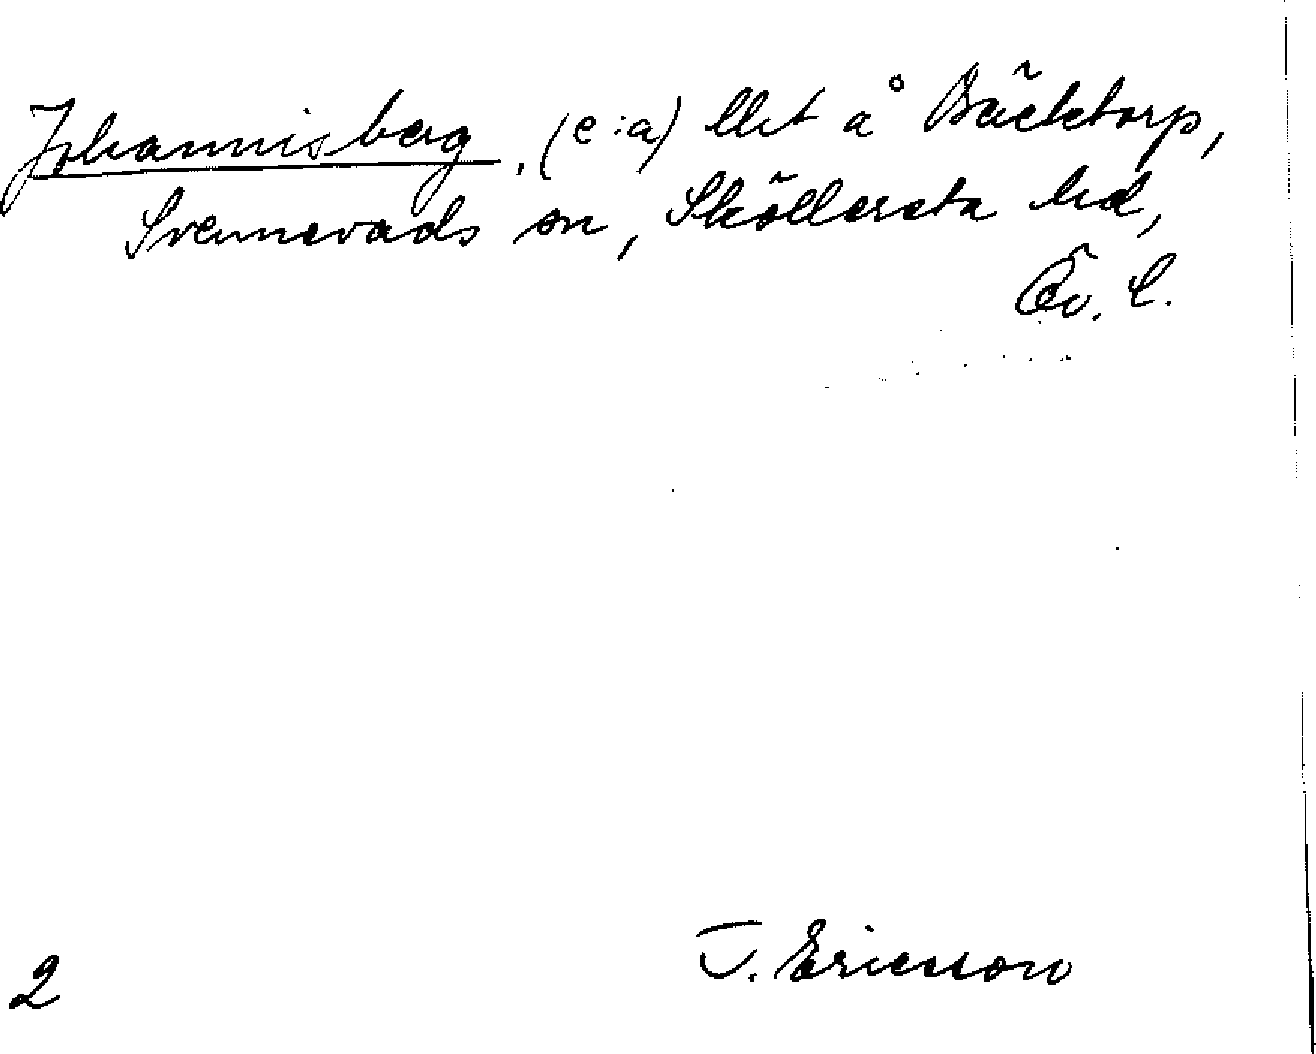 Johannisberg, (e:a) lht å Bäcktorp,
Svennevads sn, Sköllersta hd,
Ör. l.
J. Ericsson
2